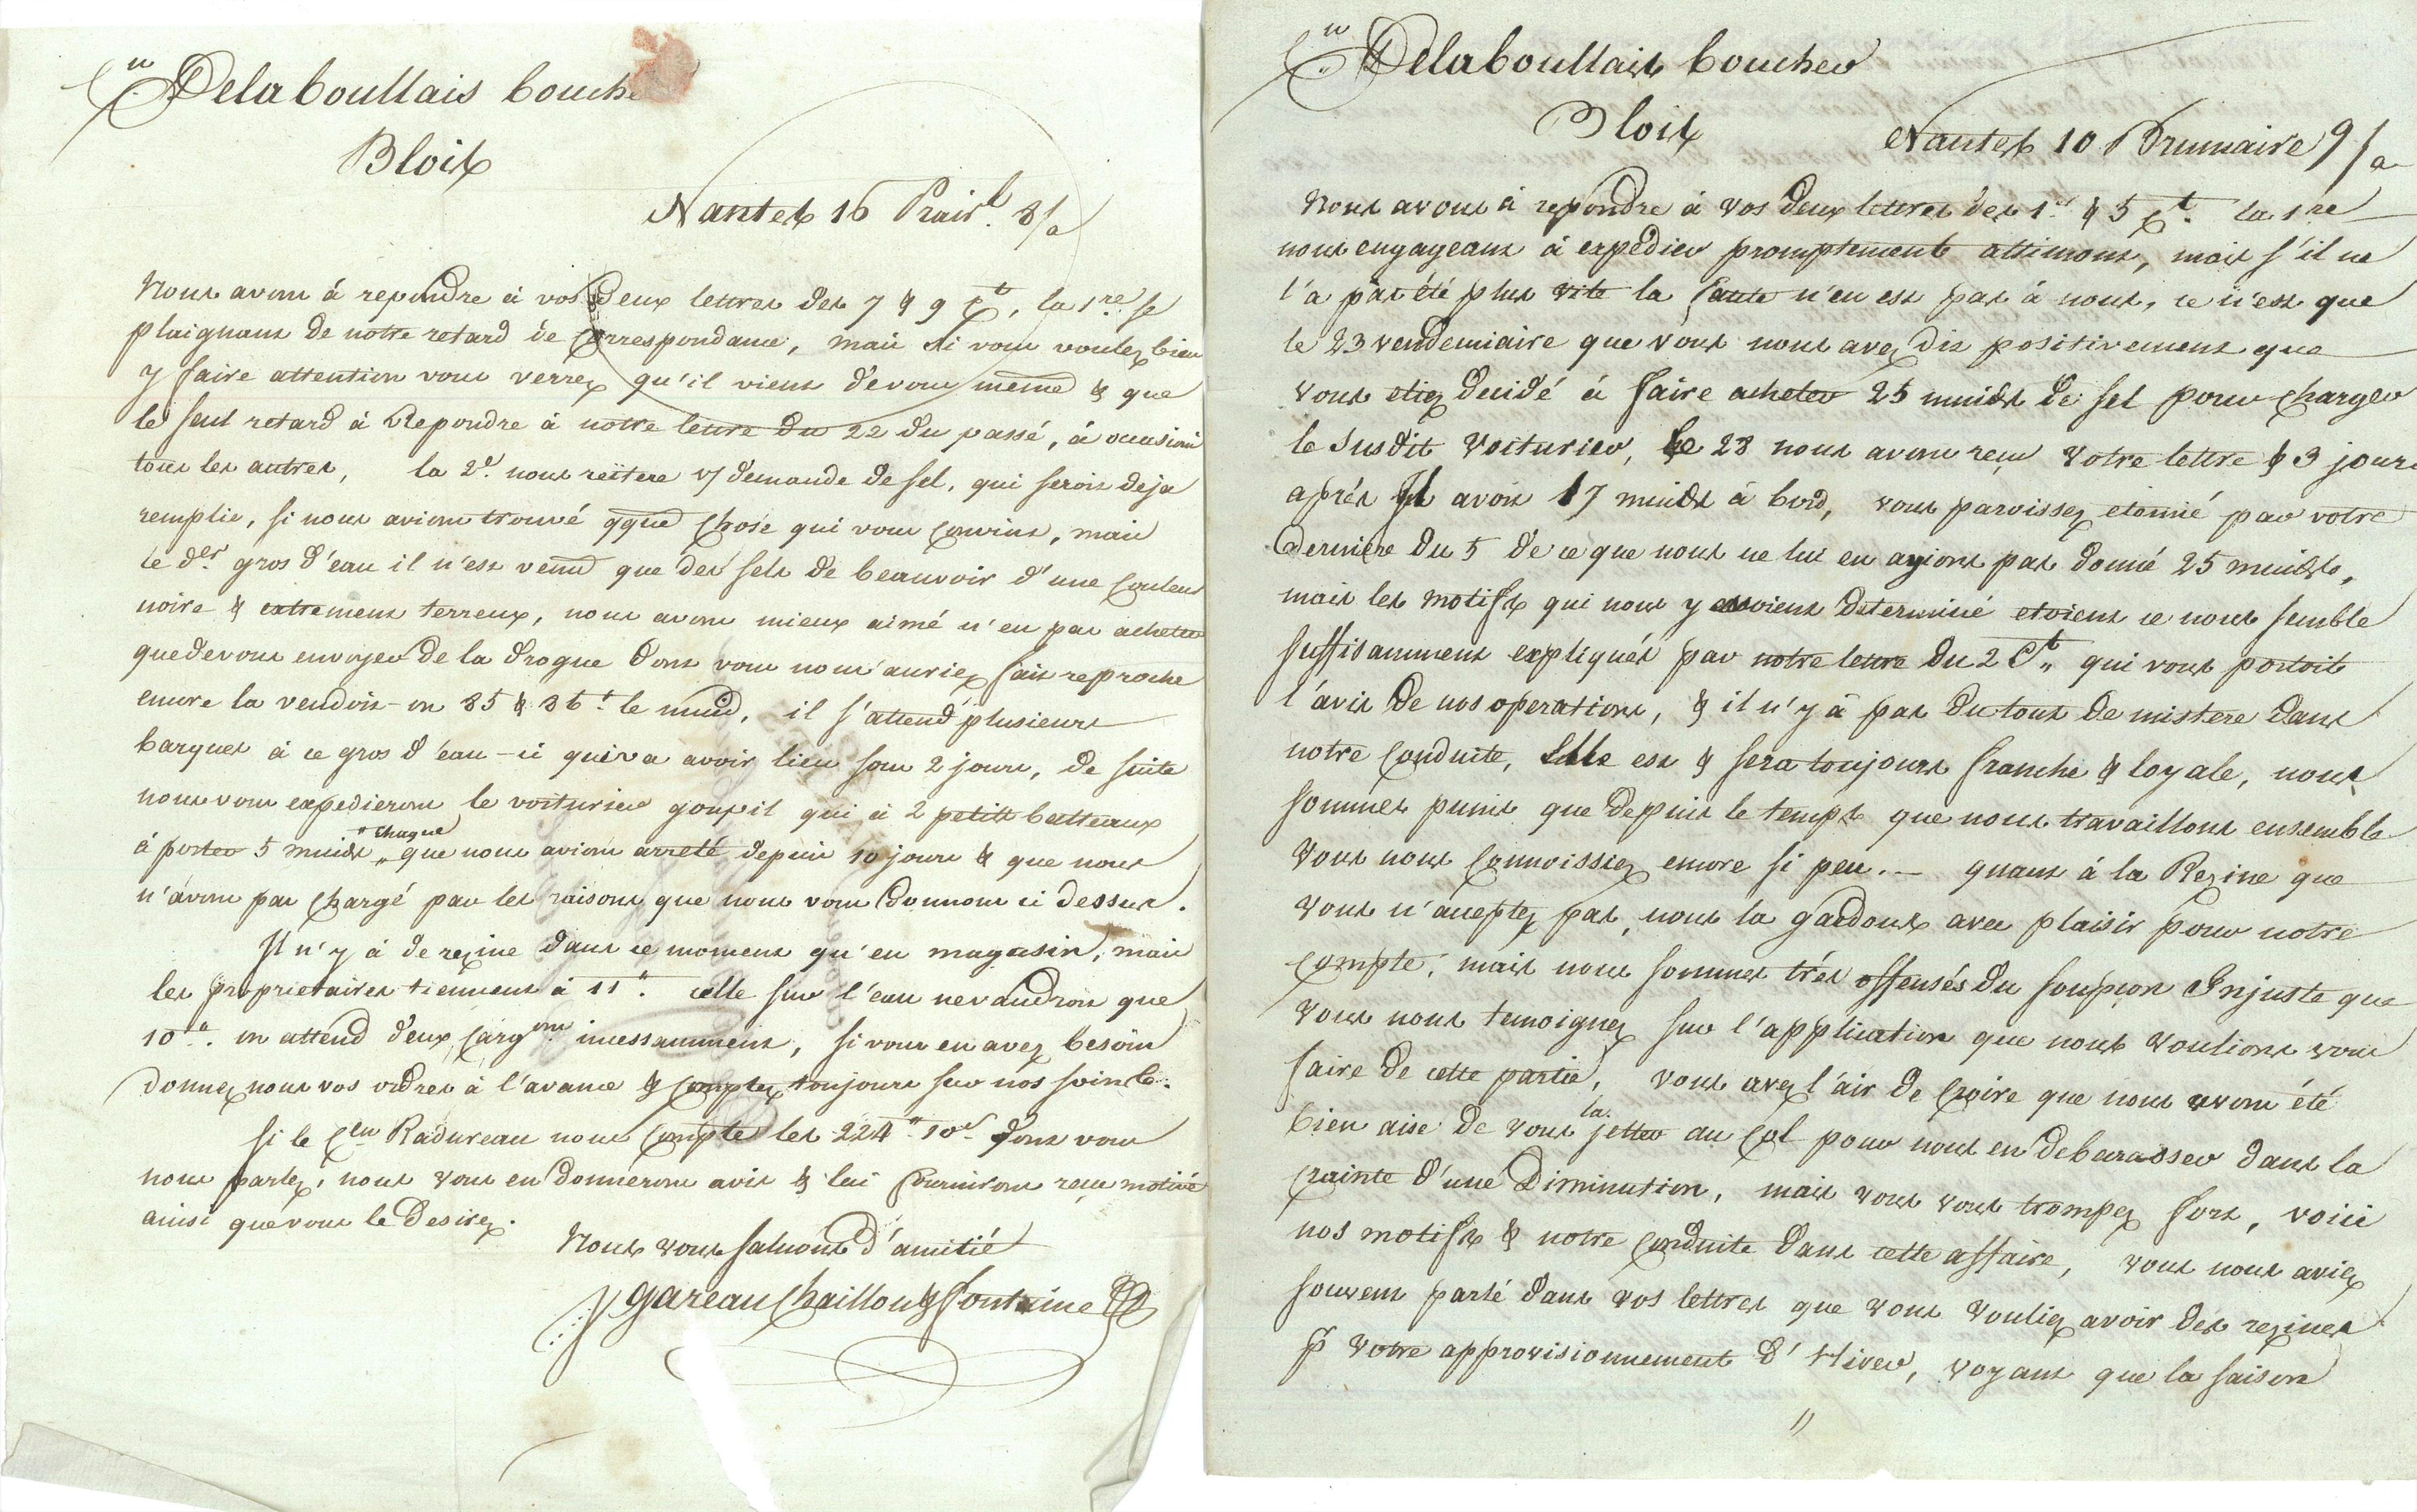 Cen Delaboullais bouche
Blois
Nantes 16 Prairl. 8/a
Nous avons à repondre à vos deux lettres des 7 & 9 Ct, la 1re se
plaignant de notre retard de Correspondance, mais si vous voulez bien
y faire attention vous verrez qu'il vient devous meme & que
le seul retard à Repondre à notre lettre du 22 du passé, à occasioné
tous les autres, la 2e. nous reïtere v/ demande de sel, qui seroit deja
remplie, si nous avions trouvé qque chose qui vous Convint, mais
le der gros d'eau il n'est venu que des sels de beauvoir d'une Couleur
noire & extremement terreux, nous avons mieux aimé n'en pas acheter
quedevous envoyer de la drogue dont vous nous auriez fait reproche
encore la vendoit-on 85 & 86 lt le muid, il s'attend plusieurs
barques à ce gros d'eau-ci quiva avoir lieu sous 2 jours, de suite
nousvous expedierons le voiturier goupil qui à 2 petits batteaux
à porter 5 muids " chaque " que nous avions arreté depuis 10 jours & que nous
n'avons pas Chargé par les raisons que nous vous donnons ci dessus.
Il n'y à de rezine dans ce moment qu'en magasin, mais
les proprietaires tiennent à 11 lt. celle sur l'eau nevaudroit que
10 lt. on attend deux Cargons incessamment, si vous en avez besoin
donnez nous vos ordres à l'avance & Comptez toujours sur nos soins.
Si le Cen Radureau nous Compte les 224 lt 10s dont vous
nous parlez, nous vous en donnerons avis & lui fournirons reçu motivé
ainsi quevous le desirez.
Nous vous saluons d'amitié
gareau Chaillou & fontaine
Cen Delaboullais boucher
Blois
Nantes 10 Brumaire 9/a
Nous avons à repondre à vos deux lettres des 1er & 5 Ct. la 1re
nous engageant à expedier promptement attimont, mais s'il ne
l'a pas été plus vite la faute n'en est pas à nous, ce n'est que
le 23 vendemiaire que vous nous avez dit positivement que
vous etiez decidé à faire acheter 25 muids de sel pour charger
le susdit voiturier, le 28 nous avons reçu votre lettre & 3 jours
après Il avoit 17 muids à bord, vous paroissez etonné par votre
derniere du 5 de ce que nous ne lui en ayions pas donné 25 muids,
mais les motifs qui nous y avoient determiné etoient ce nous semble
suffisamment expliqués par notre lettre du 2 Ct. qui vous portoit
l'avis de nos operations, & il n'y à pas du tout de mistere dans
notre Conduite, Elle est & sera toujours franche & loyale, nous
sommes punis que depuis le temps que nous travaillons ensemble
vous nous Connoissiez encore si peu. - quant à la Rezine que
vous n'acceptez pas, nous la gardons avec plaisir pour notre
Compte, mais nous sommes très offensés du soupçon Injuste que
vous nous temoignez sur l'application que nous voulions vous
faire de cette partie, vous avez l'air de Croire que nous avons été
bien aise de vous la jetter au Col pour nous en debarasser dans la
Crainte d'une Diminution, mais vous vous trompez fort, voici
nos motifs & notre Conduite dans cette affaire, vous nous aviez
souvent parlé dans vos lettres que vous vouliez avoir des rezines
p votre approvisionnement d'Hiver, voyant que la saison
//